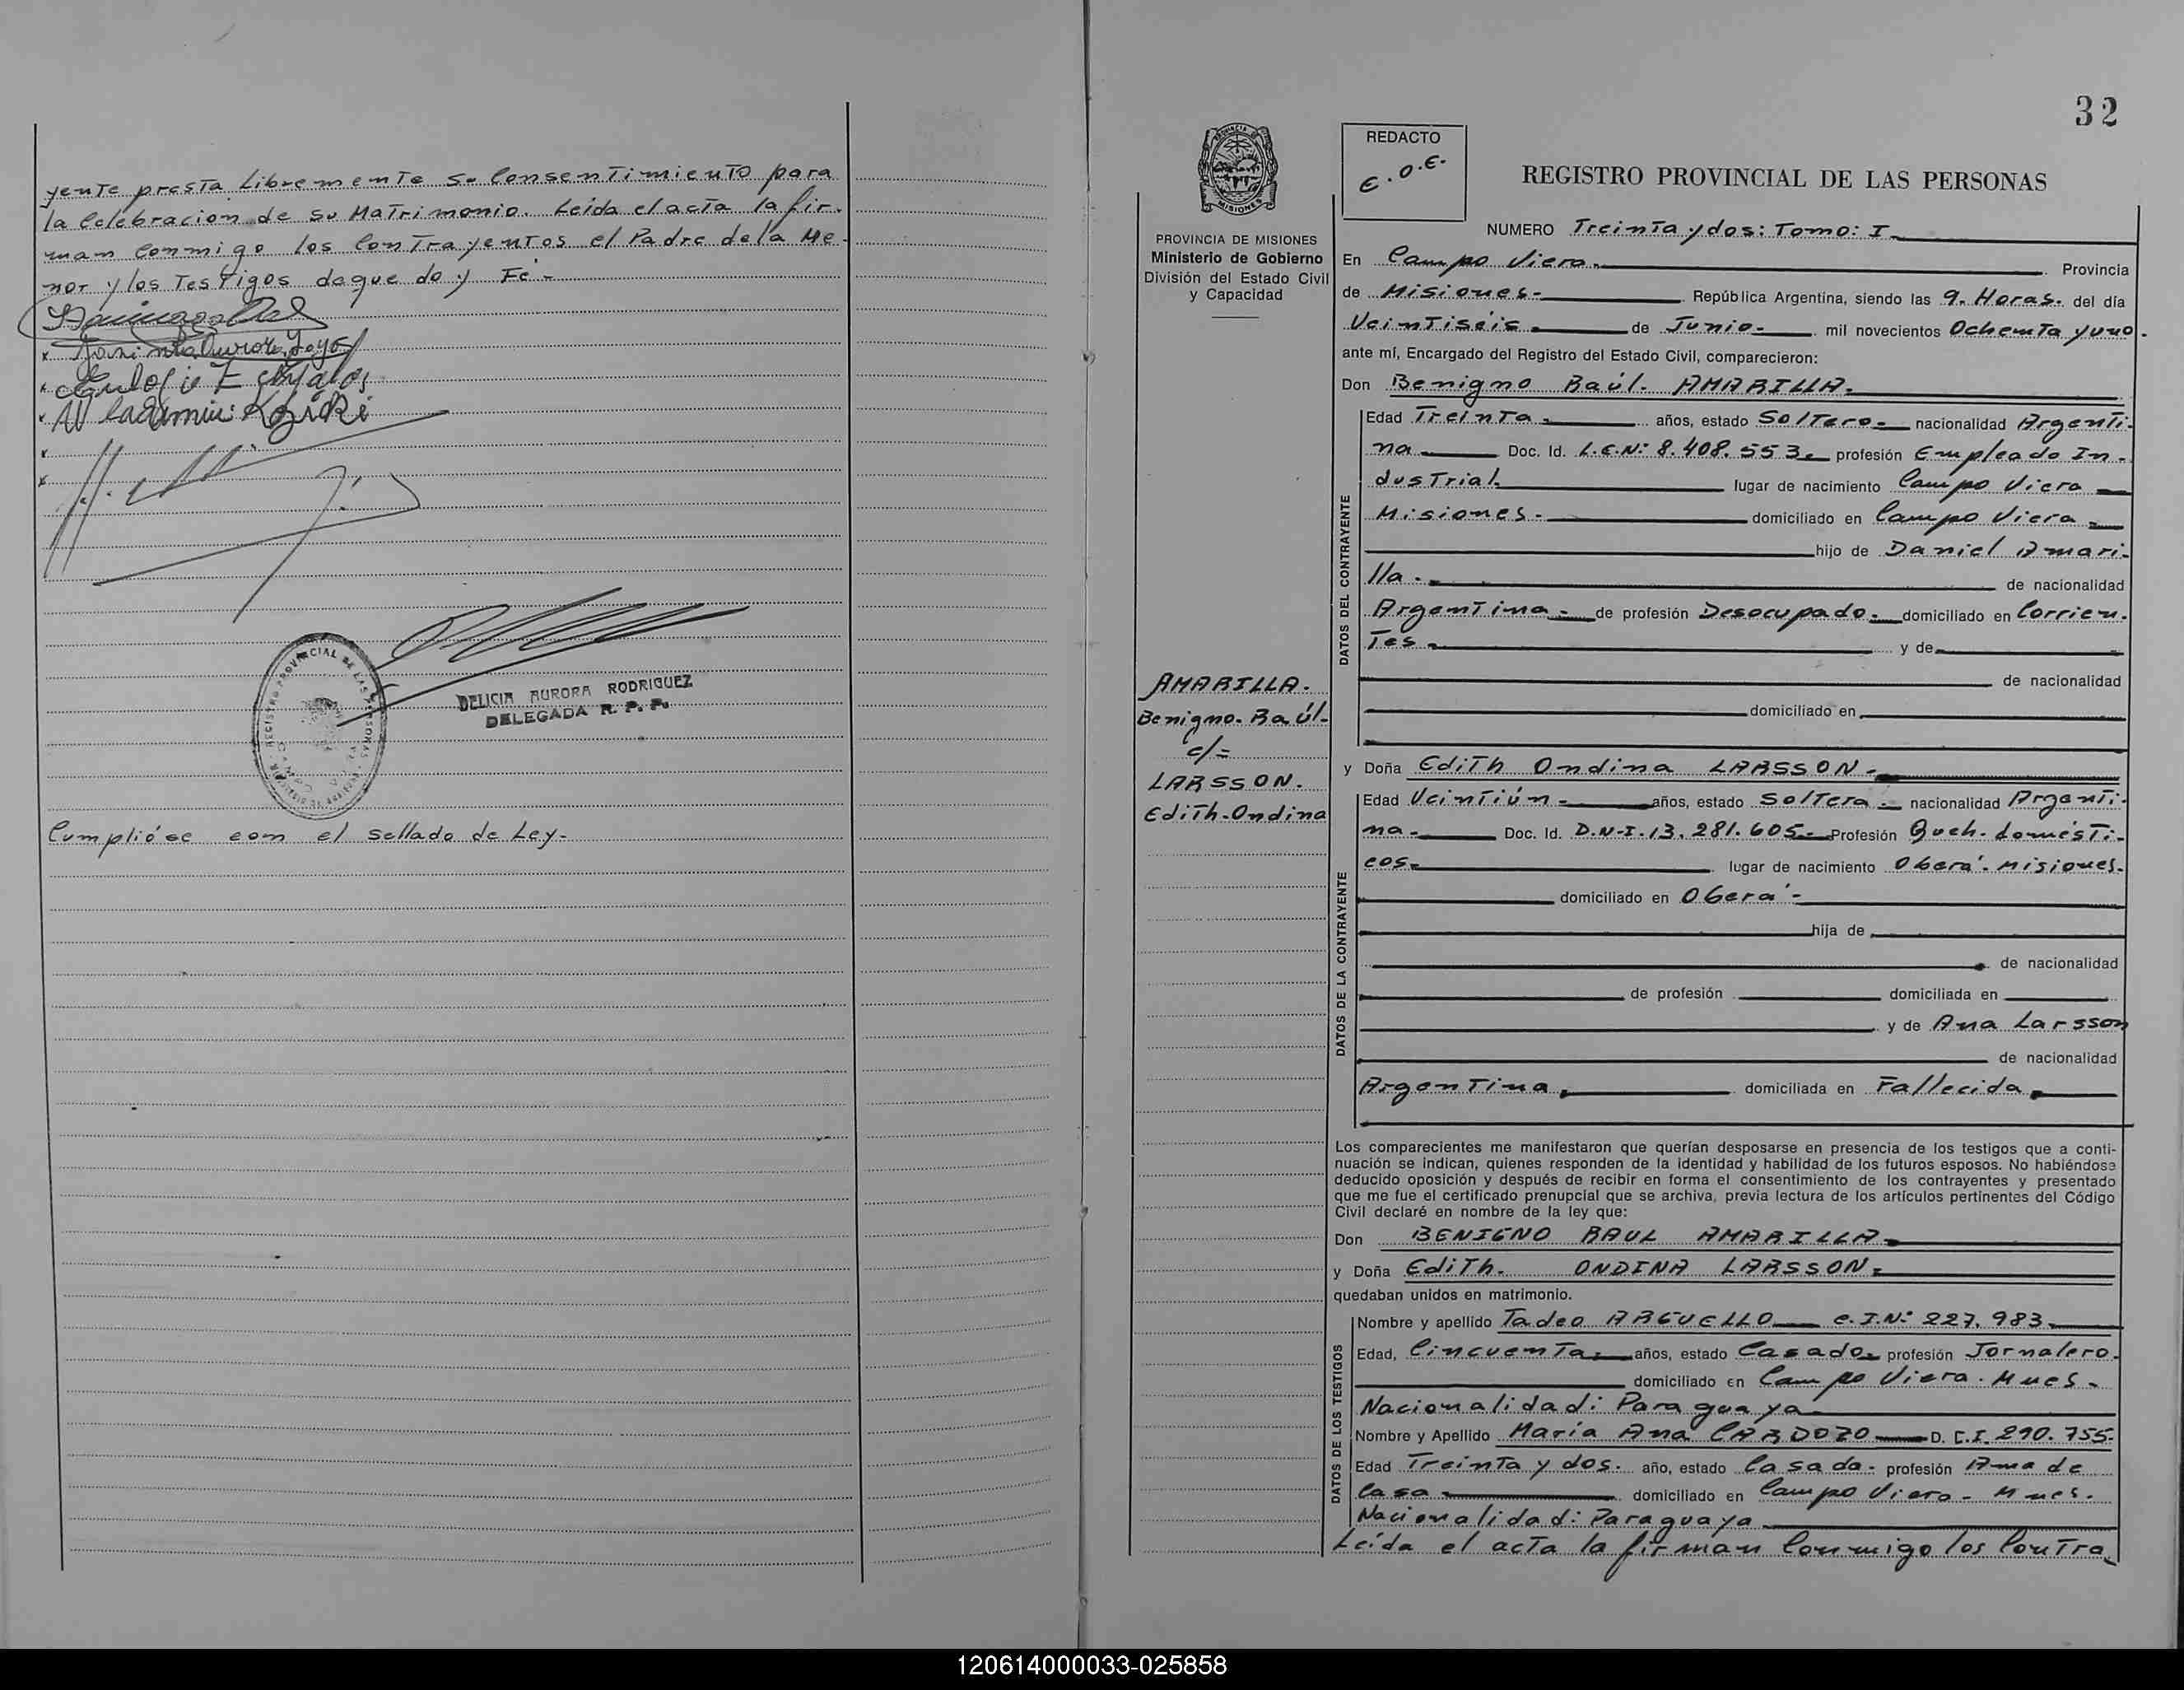 yente presta Libremente su Consentimiento para
la Celebración de su Matrimonio. Leída el acta la fir-
man Conmigo los Contrayentes el Padre de la Me-
nor y los Testigos de que doy Fé-
DELICIA AURORA RODRIGUEZ
DELEGADA R. P. P.
Cumplióse con el sellado de Ley-
32
REDACTO
E.O.E.
REGISTRO PROVINCIAL DE LAS PERSONAS
PROVINCIA DE MISIONES
Ministerio de Gobierno
División del Estado Civil
y Capacidad
AMARILLA.
Benigno-Raúl-
c/=
LARSSON.
Edith-Ondina
NUMERO Treinta y dos: Tomo: I.
En Campo Viera. Provincia
de Misiones- República Argentina, siendo las 9. Horas. del día
Veintiséis de Junio- mil novecientos Ochenta y uno.
ante mí, Encargado del Registro del Estado Civil, comparecieron:
Don Benigno Raúl. AMARILLA.
DATOS DEL CONTRAYENTE
Edad Treinta. años, estado Soltero- nacionalidad Argenti-
na Doc. Id. L.E.Nº 8.408.553. profesión Empleado In-
dustrial. lugar de nacimiento Campo Viera
Misiones. domiciliado en Campo Viera.
hijo de Daniel Amari-
lla. de nacionalidad
Argentina- de profesión Desocupado. domiciliado en Corrien-
tes y de
de nacionalidad
domiciliado en
y Doña Edith Ondina LARSSON.
DATOS DE LA CONTRAYENTE
Edad Veintiún- años, estado Soltera- nacionalidad Argenti-
na- Doc. Id. D.N.I. 13.281.605- Profesión Queh. domésti-
cos- lugar de nacimiento Oberá. Misiones.
domiciliado en Oberá-
hija de
de nacionalidad
de profesión domiciliada en
y de Ana Larsson
de nacionalidad
Argentina. domiciliada en Fallecida
Los comparecientes me manifestaron que querían desposarse en presencia de los testigos que a conti-
nuación se indican, quienes responden de la identidad y habilidad de los futuros esposos. No habiéndose
deducido oposición y después de recibir en forma el consentimiento de los contrayentes y presentado
que me fue el certificado prenupcial que se archiva, previa lectura de los artículos pertinentes del Código
Civil declaré en nombre de la ley que:
Don BENIGNO RAUL AMARILLA
y Doña Edith. ONDINA LARSSON.
quedaban unidos en matrimonio.
DATOS DE LOS TESTIGOS
Nombre y apellido Tadeo ARGUELLO C.I.Nº 227.983.
Edad, Cincuenta. años, estado Casado. profesión Jornalero.
domiciliado en Campo Viera. Mnes-
Nacionalidad: Paraguaya
Nombre y Apellido María Ana CARDOZO D. C.I. 290.755.
Edad Treinta y dos. año, estado Casada. profesión Ama de
Casa domiciliado en Campo Viera - Mnes.
Nacionalidad: Paraguaya
Leída el acta la firman Conmigo los Contra
120614000033-025858